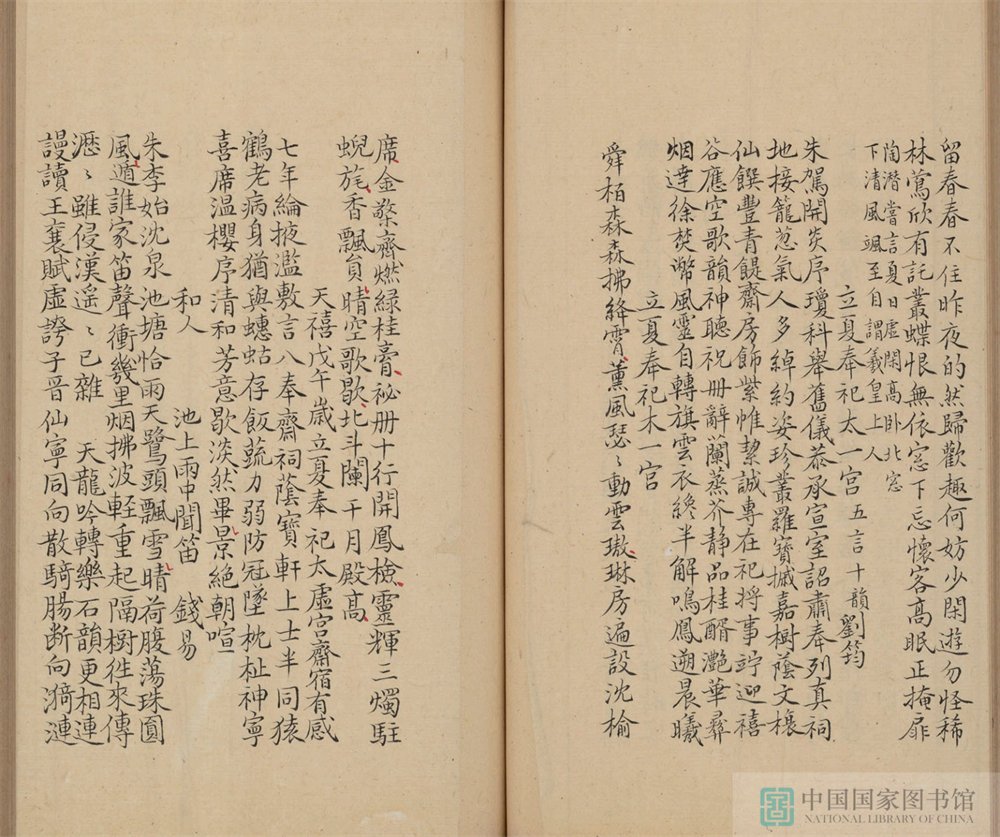 留春春不住昨夜的然歸歡趣何妨少閑遊勿怪稀
林鶯欣有託叢蝶恨無依窓下忘懷客高眠正掩扉
陶潛嘗言夏日虛閑高卧北窓
下清風颯至自謂羲皇上人
立夏奉祀太一宮五言十韻劉筠
朱駕開炎序瓊科舉舊儀恭承宣室詔肅奉列真祠
地接籠蔥氣人多綽約姿珍叢羅寶檻嘉樹蔭文榱
仙饌豐青飿齋房飾紫帷絜誠專在祀將事竚迎禧
谷應空歌韻神聽祝册辭蘭蒸芥静品桂醑灔華彞
烟達徐焚幣風靈自轉旗雲衣終半解鳴鳳遡晨曦
立夏奉祀木一宮
舜栢森森拂絳霄薰風瑟〻動雲璈琳房遍設沈榆
席金檠齊燃綠桂膏祕册十行開鳳檢靈輝三燭駐
蜺旄香飄負晴空歌歇北斗闌干月殿高
天禧戊午歲立夏奉祀太虛宮齋宿有感
七年綸掖濫敷言八奉齋祠蔭寶軒上士半同猿
鶴老病身猶與蟪蛄存飯蔬力弱防冠墜枕杫神寧
喜席溫櫻序清和芳意歇淡然畢景絕朝喧
和人 池上雨中聞笛 錢易
朱李始沈泉池塘恰雨天鷺頭飄雪晴荷腹蕩珠圓
風遁誰家笛聲衝幾里烟拂波軽重起隔樹徃來傳
瀝〻雖侵漢遥〻已雜 天龍吟轉樂石韻更相連
謾讀王襃賦虛誇子晋仙寧同向散騎腸断向漪漣
中国国家图书馆
NATIONAL LIBRARY OF CHINA